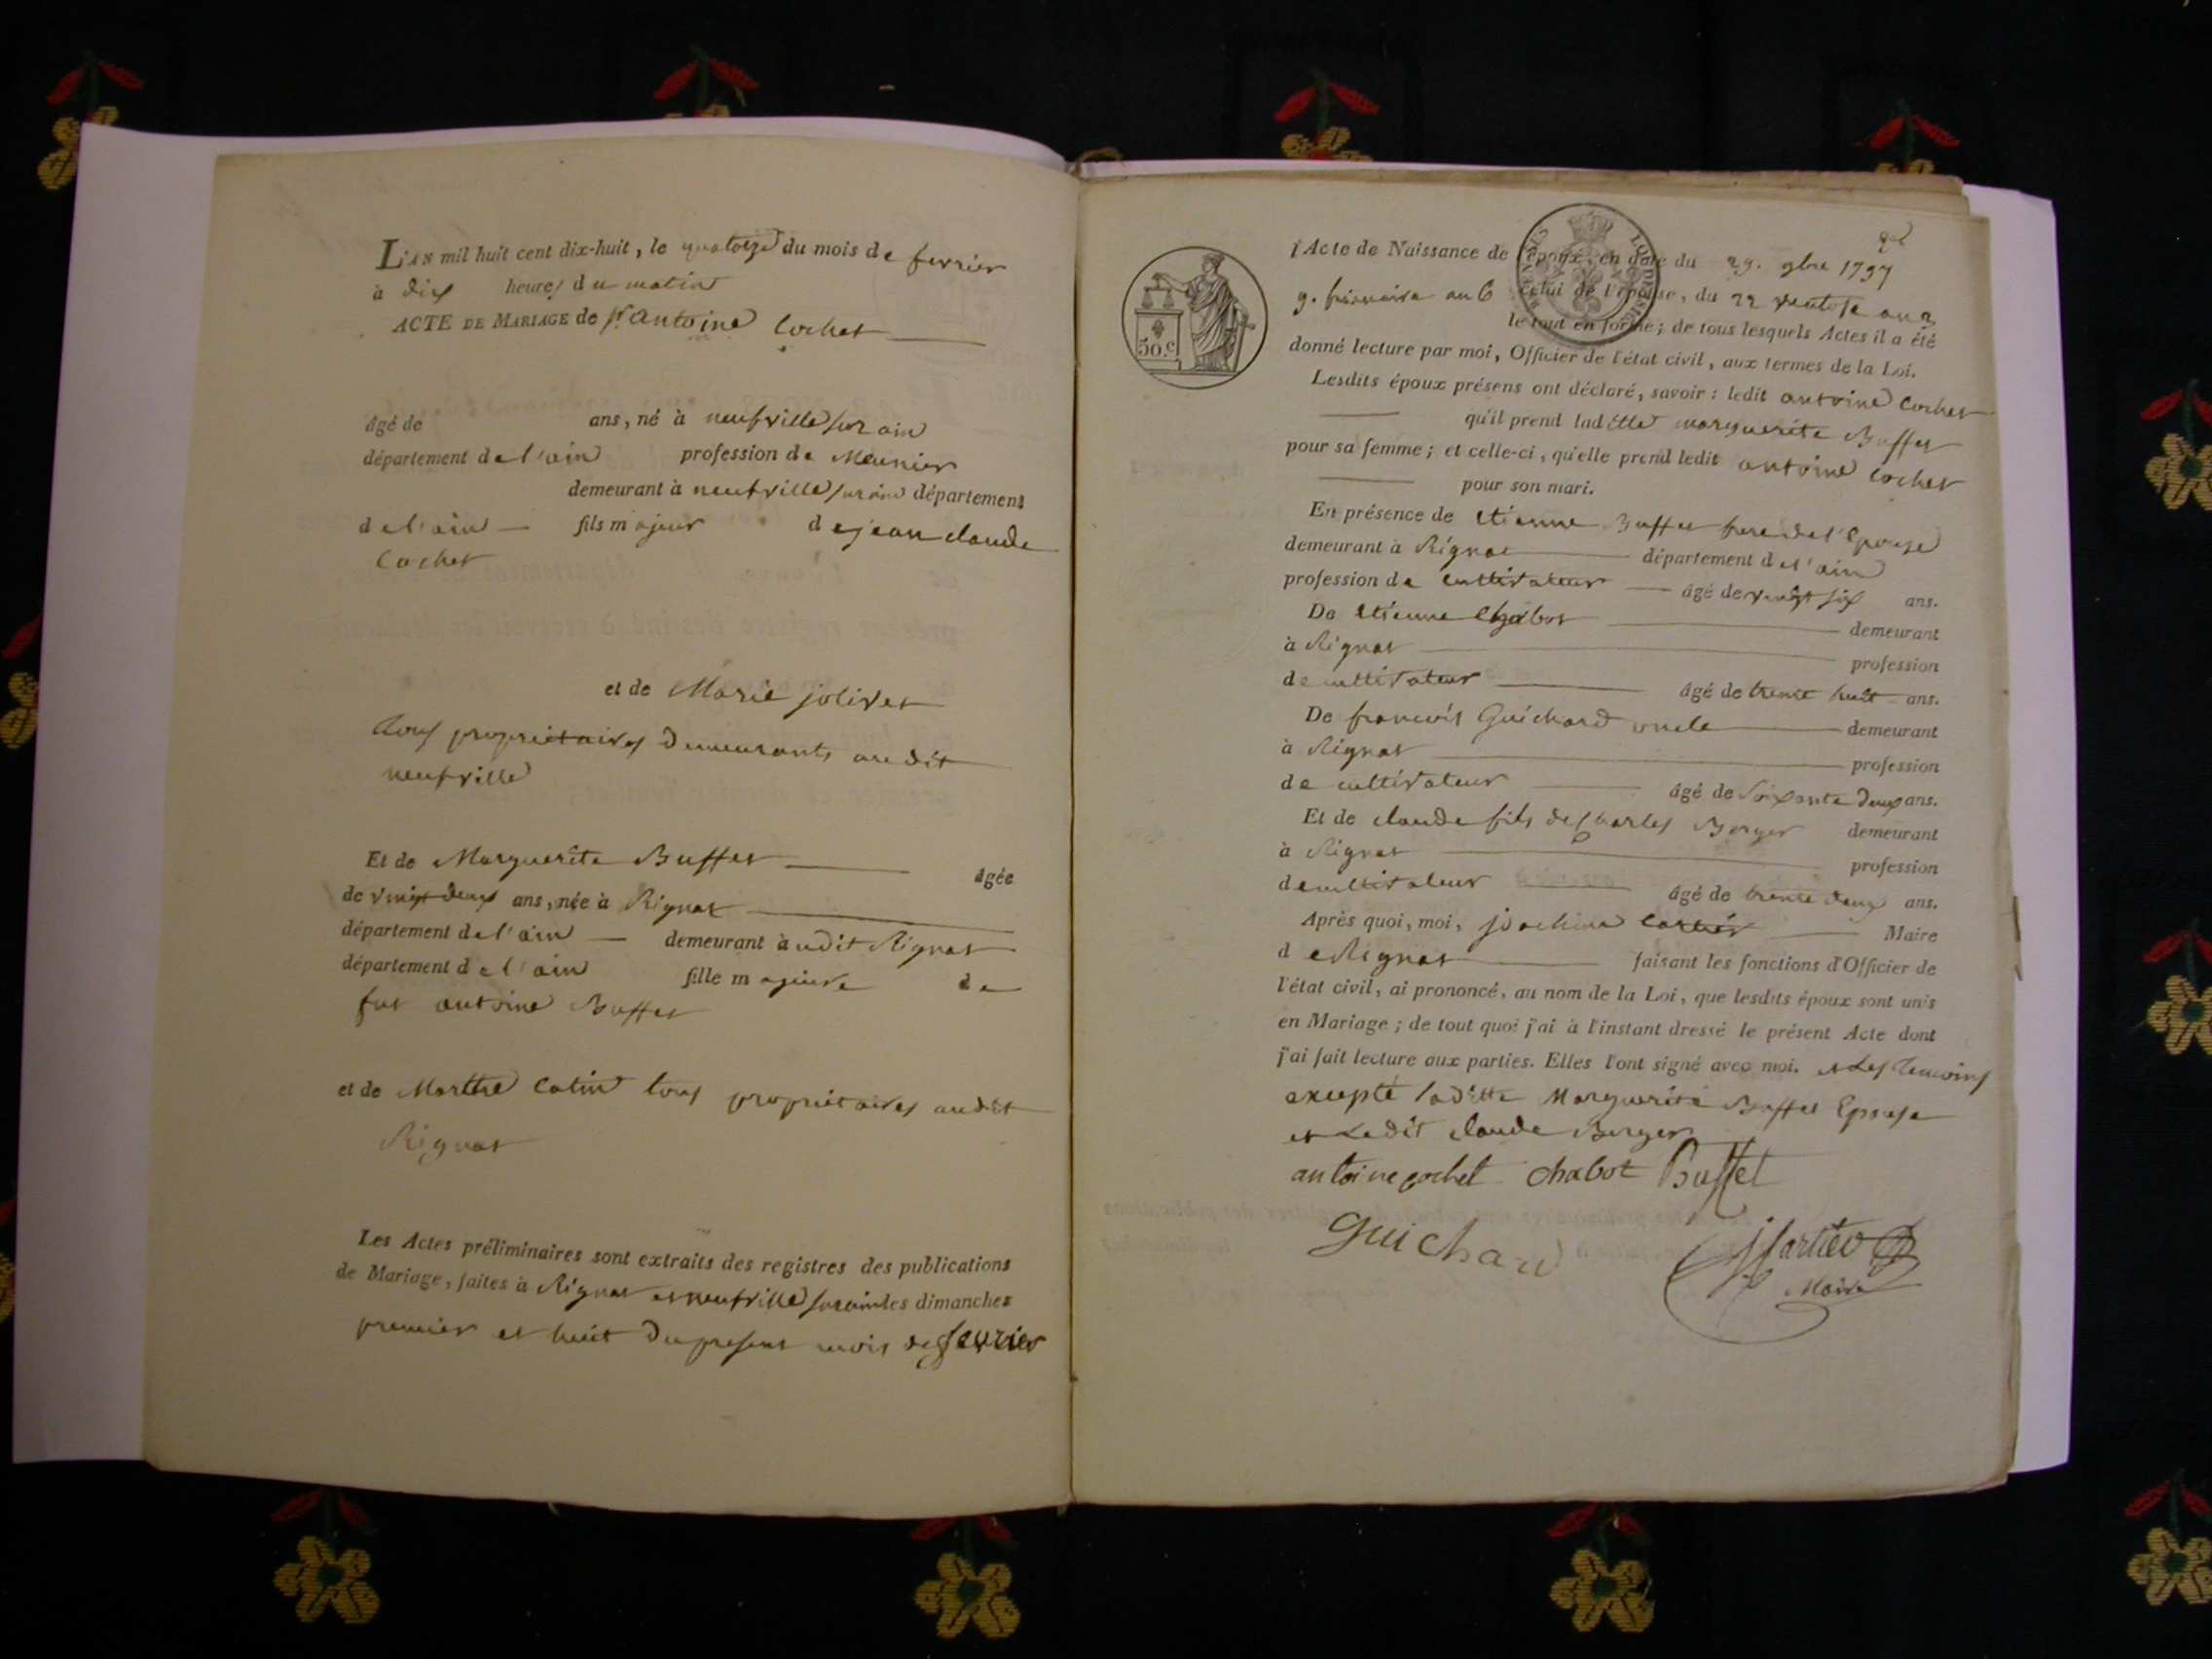 L'AN mil huit cent dix-huit, le quatorze du mois de fevrier
à dix heures du matin
ACTE DE MARIAGE de Sr antoine Cochet
âgé de ans, né à neufville sur ain
département de l'ain profession de Meunier
demeurant à neufville sur ain département
de l'ain fils majeur de jean claude
Cochet
et de Marie jolivet
tous proprietaires demeurants audit
neufville
Et de Marguerite Buffet âgée
de vingt deux ans, née à Rignat
département de l'ain demeurant audit Rignat
département de l'ain fille majeure de
fut antoine Buffet
et de Marthe Catin tous proprietaires audit
Rignat
Les Actes préliminaires sont extraits des registres des publications
de Mariage, faites à Rignat et neufville sur ain les dimanches
premier et huit du present mois de fevrier
50.c
l'Acte de Naissance de l'époux, en date du 29. 9bre 1797
9. frimaire an 6 celui de l'épouse, du 22 ventose an
le tout en forme; de tous lesquels Actes il a été
donné lecture par moi, Officier de l'état civil, aux termes de la Loi.
Lesdits époux présens ont déclaré, savoir : ledit antoine Cochet
qu'il prend ladette marguerite Buffet
pour sa femme; et celle-ci, qu'elle prend ledit antoine Cochet
pour son mari.
En présence de etienne Buffet frere de l'Epouse
demeurant à Rignat département de l'ain
profession de cultivateur âgé de vingt six ans.
De etienne Chabot demeurant
à Rignat profession
de cultivateur âgé de trente huit ans.
De francois Guichard oncle demeurant
à Rignat profession
de cultivateur âgé de soixante deux ans.
Et de claude fils de charles Berger demeurant
à Rignat profession
de cultivateur âgé de trente deux ans.
Après quoi, moi, joachim Maire
de Rignat faisant les fonctions d'Officier de
l'état civil, ai prononcé, au nom de la Loi, que lesdits époux sont unis
en Mariage; de tout quoi j'ai à l'instant dressé le présent Acte dont
j'ai fait lecture aux parties. Elles l'ont signé avec moi. et Les temoins
excepté laditte Marguerite Buffet Epouse
et Ledit claude Berger
antoine cochet chabot Buffet
Guichard
Maire